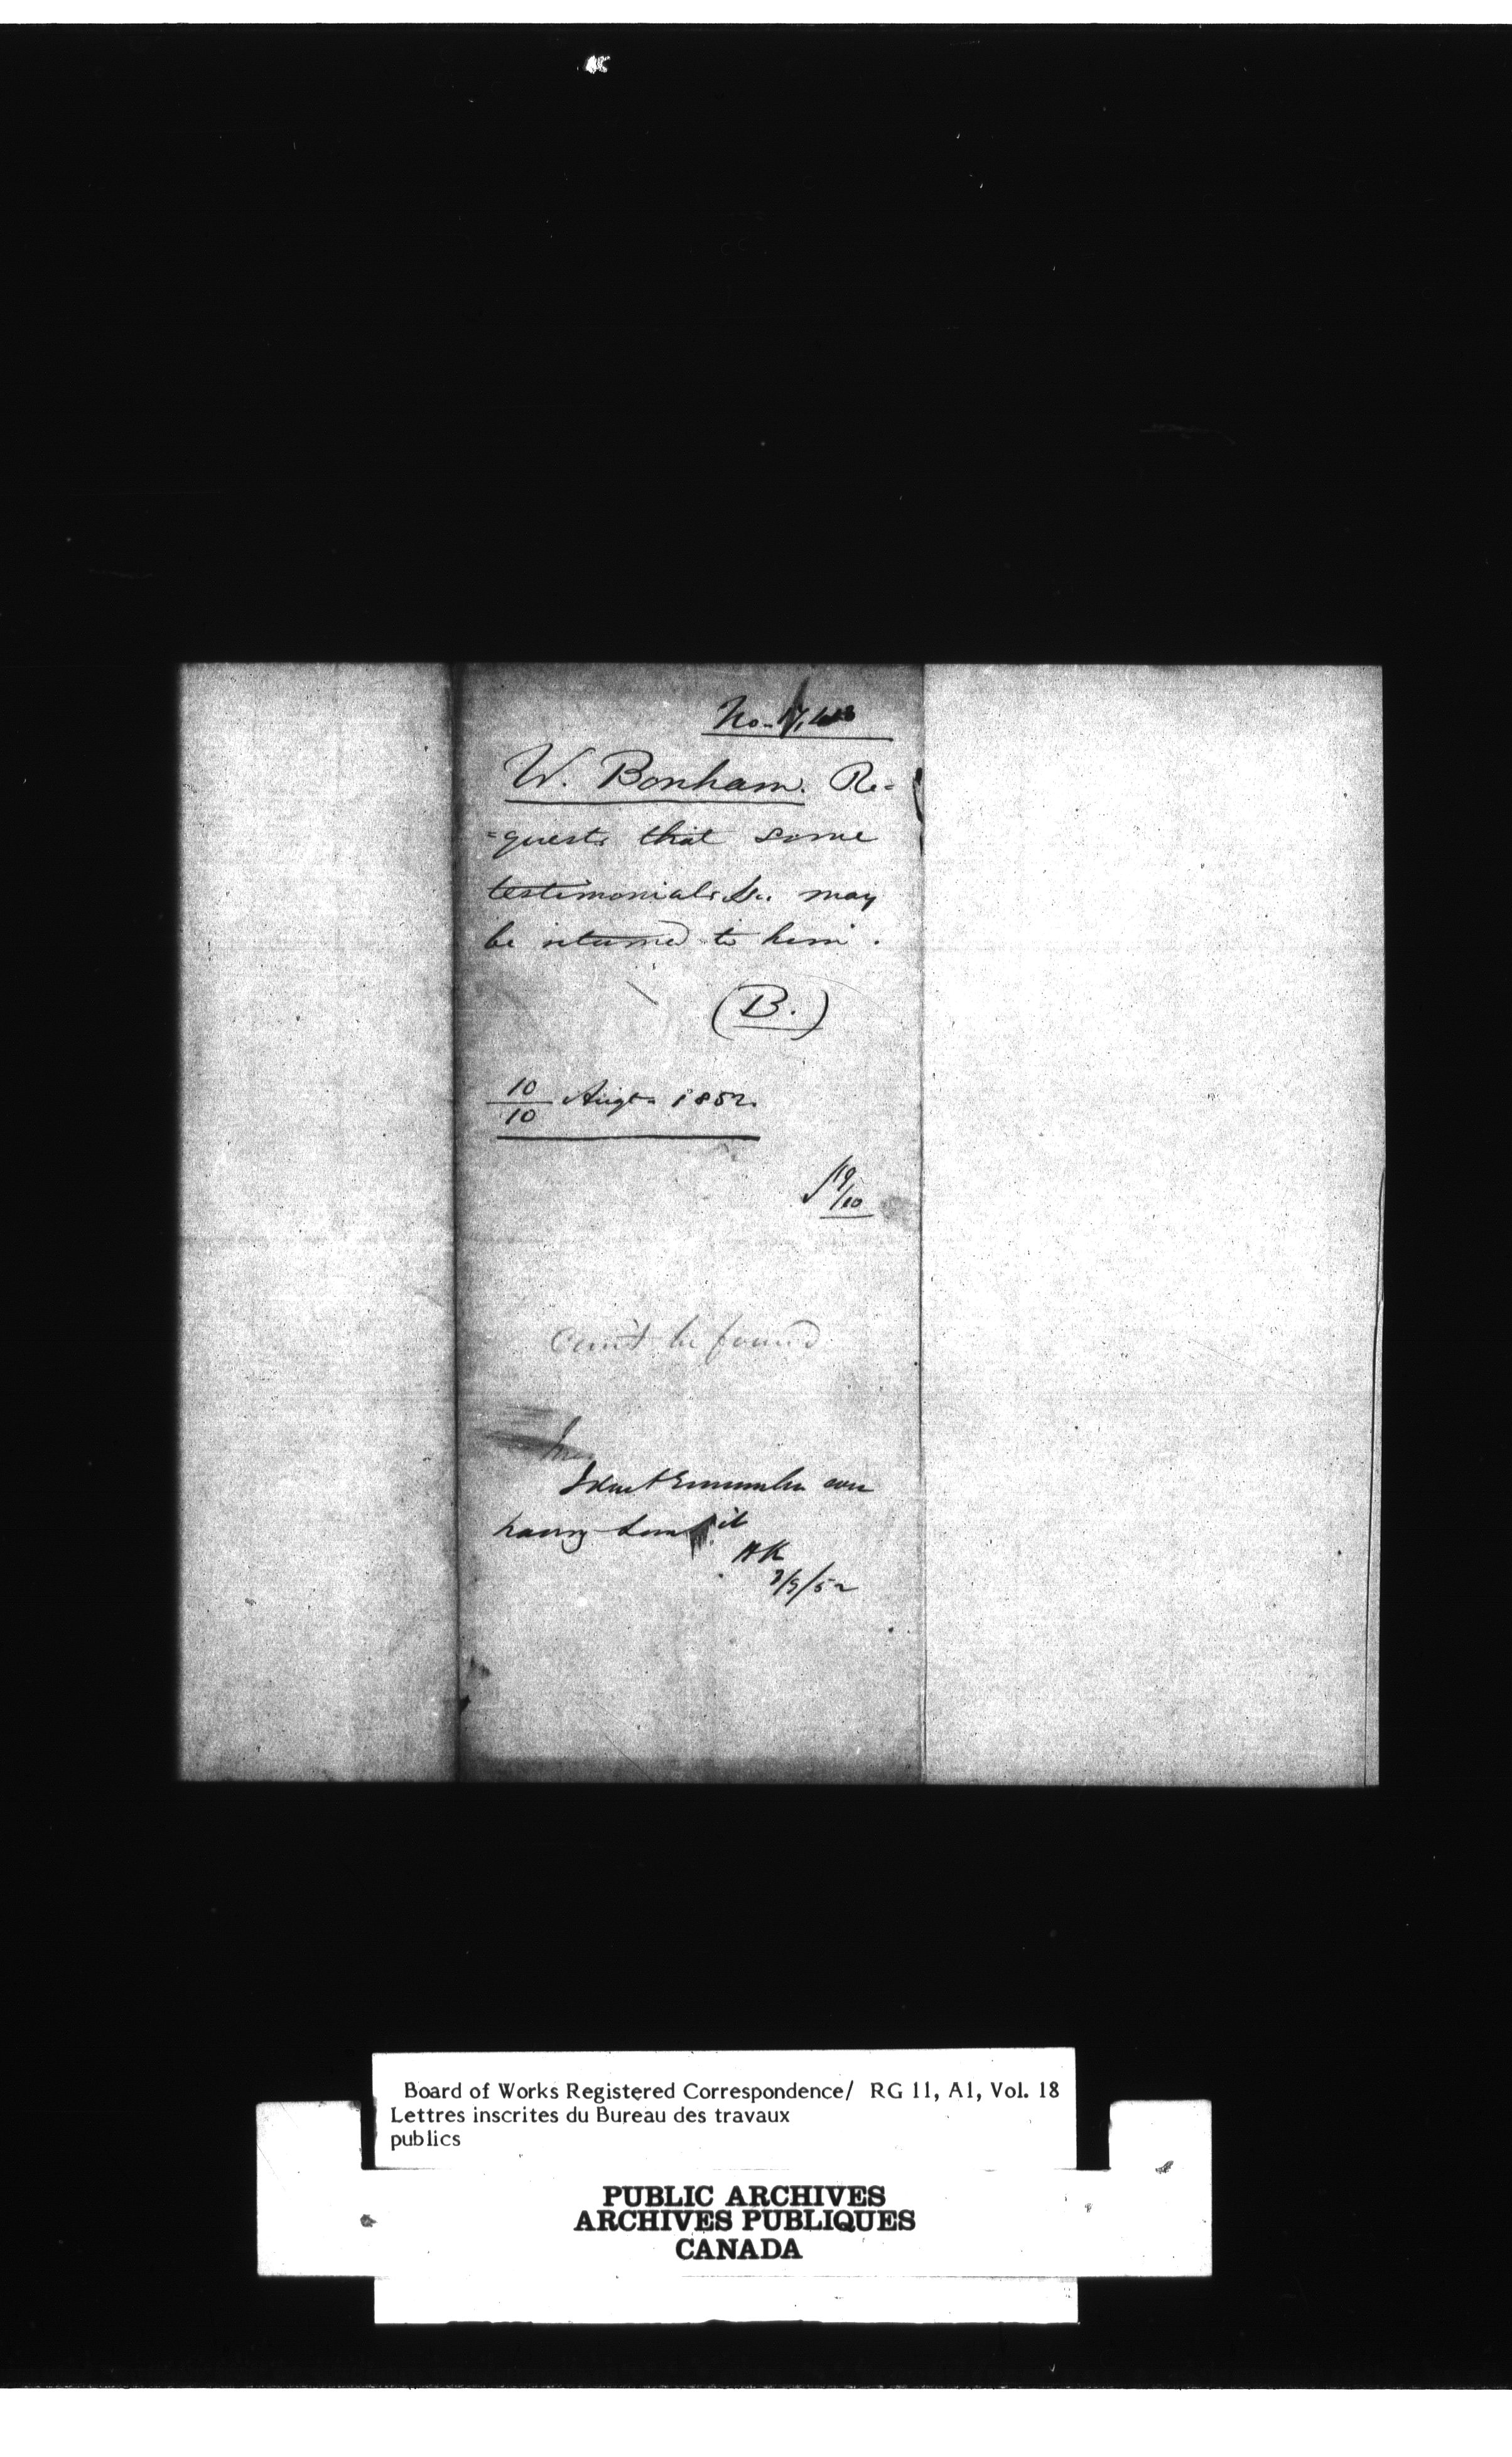 No. 17,
W. Bonham. Re=
=quests that some
testimonials &c. may
be returned to him.
(B.)
10
10 Augt. 1852
19/10
Can't be found
I don't remember ever
having seen it
HK
/9/52
Board of Works Registered Correspondence/ RG 11, A1, Vol. 18
Lettres inscrites du Bureau des travaux
publics
PUBLIC ARCHIVES
ARCHIVES PUBLIQUES
CANADA